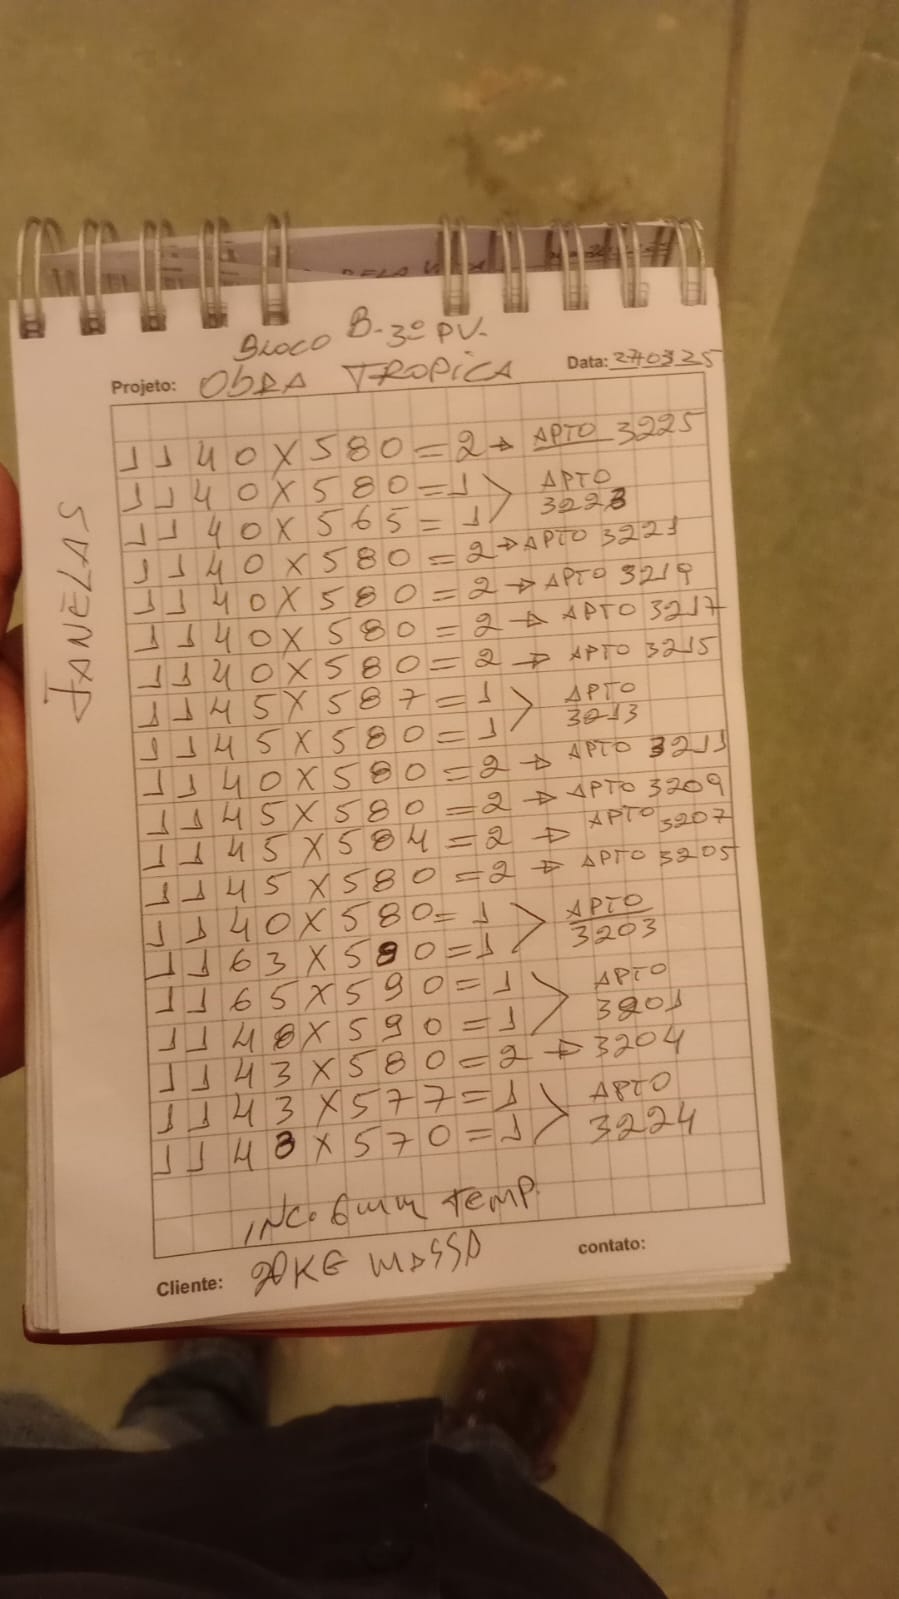 BLOCO B-3º PV.
Projeto: OBRA TROPICA Data: 270325
JANELAS
1140X580=2→ APTO 3225
1140X580=1> APTO
1140X565=1 3223
1140X580=2→APTO 3221
1140X580=2→ APTO 3219
1140X580=2→ APTO 3217
1140X580=2→ APTO 3215
1145X587=1> APTO
1145X580=1 3213
1140X580=2→ APTO 3211
1145X580=2→ APTO 3209
1145X584=2→ APTO 3207
1145X580=2→ APTO 3205
1140X580=1> APTO
1163X590=1 3203
1165X590=1> APTO
1148X590=1 3201
1143X580=2→3204
1143X577=1> APTO
1143X570=1 3224
INC. 6mm TEMP.
Cliente: 20KG MASSA contato: